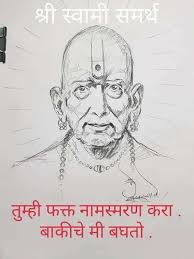 श्री स्वामी समर्थ
तुम्ही फक्त नामस्मरण करा .
बाकीचे मी बघतो .